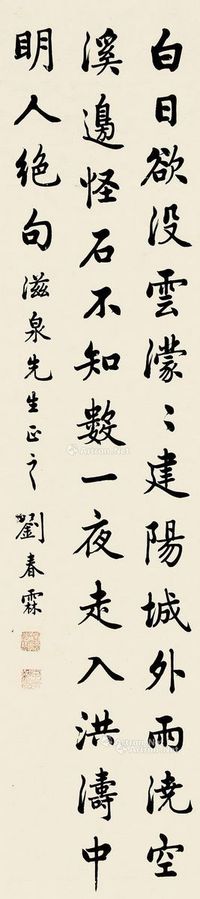 白日欲没雲濛〻建陽城外雨澆空
溪邊怪石不知數一夜走入洪濤中
明人絶句 滋泉先生正之 劉春霖